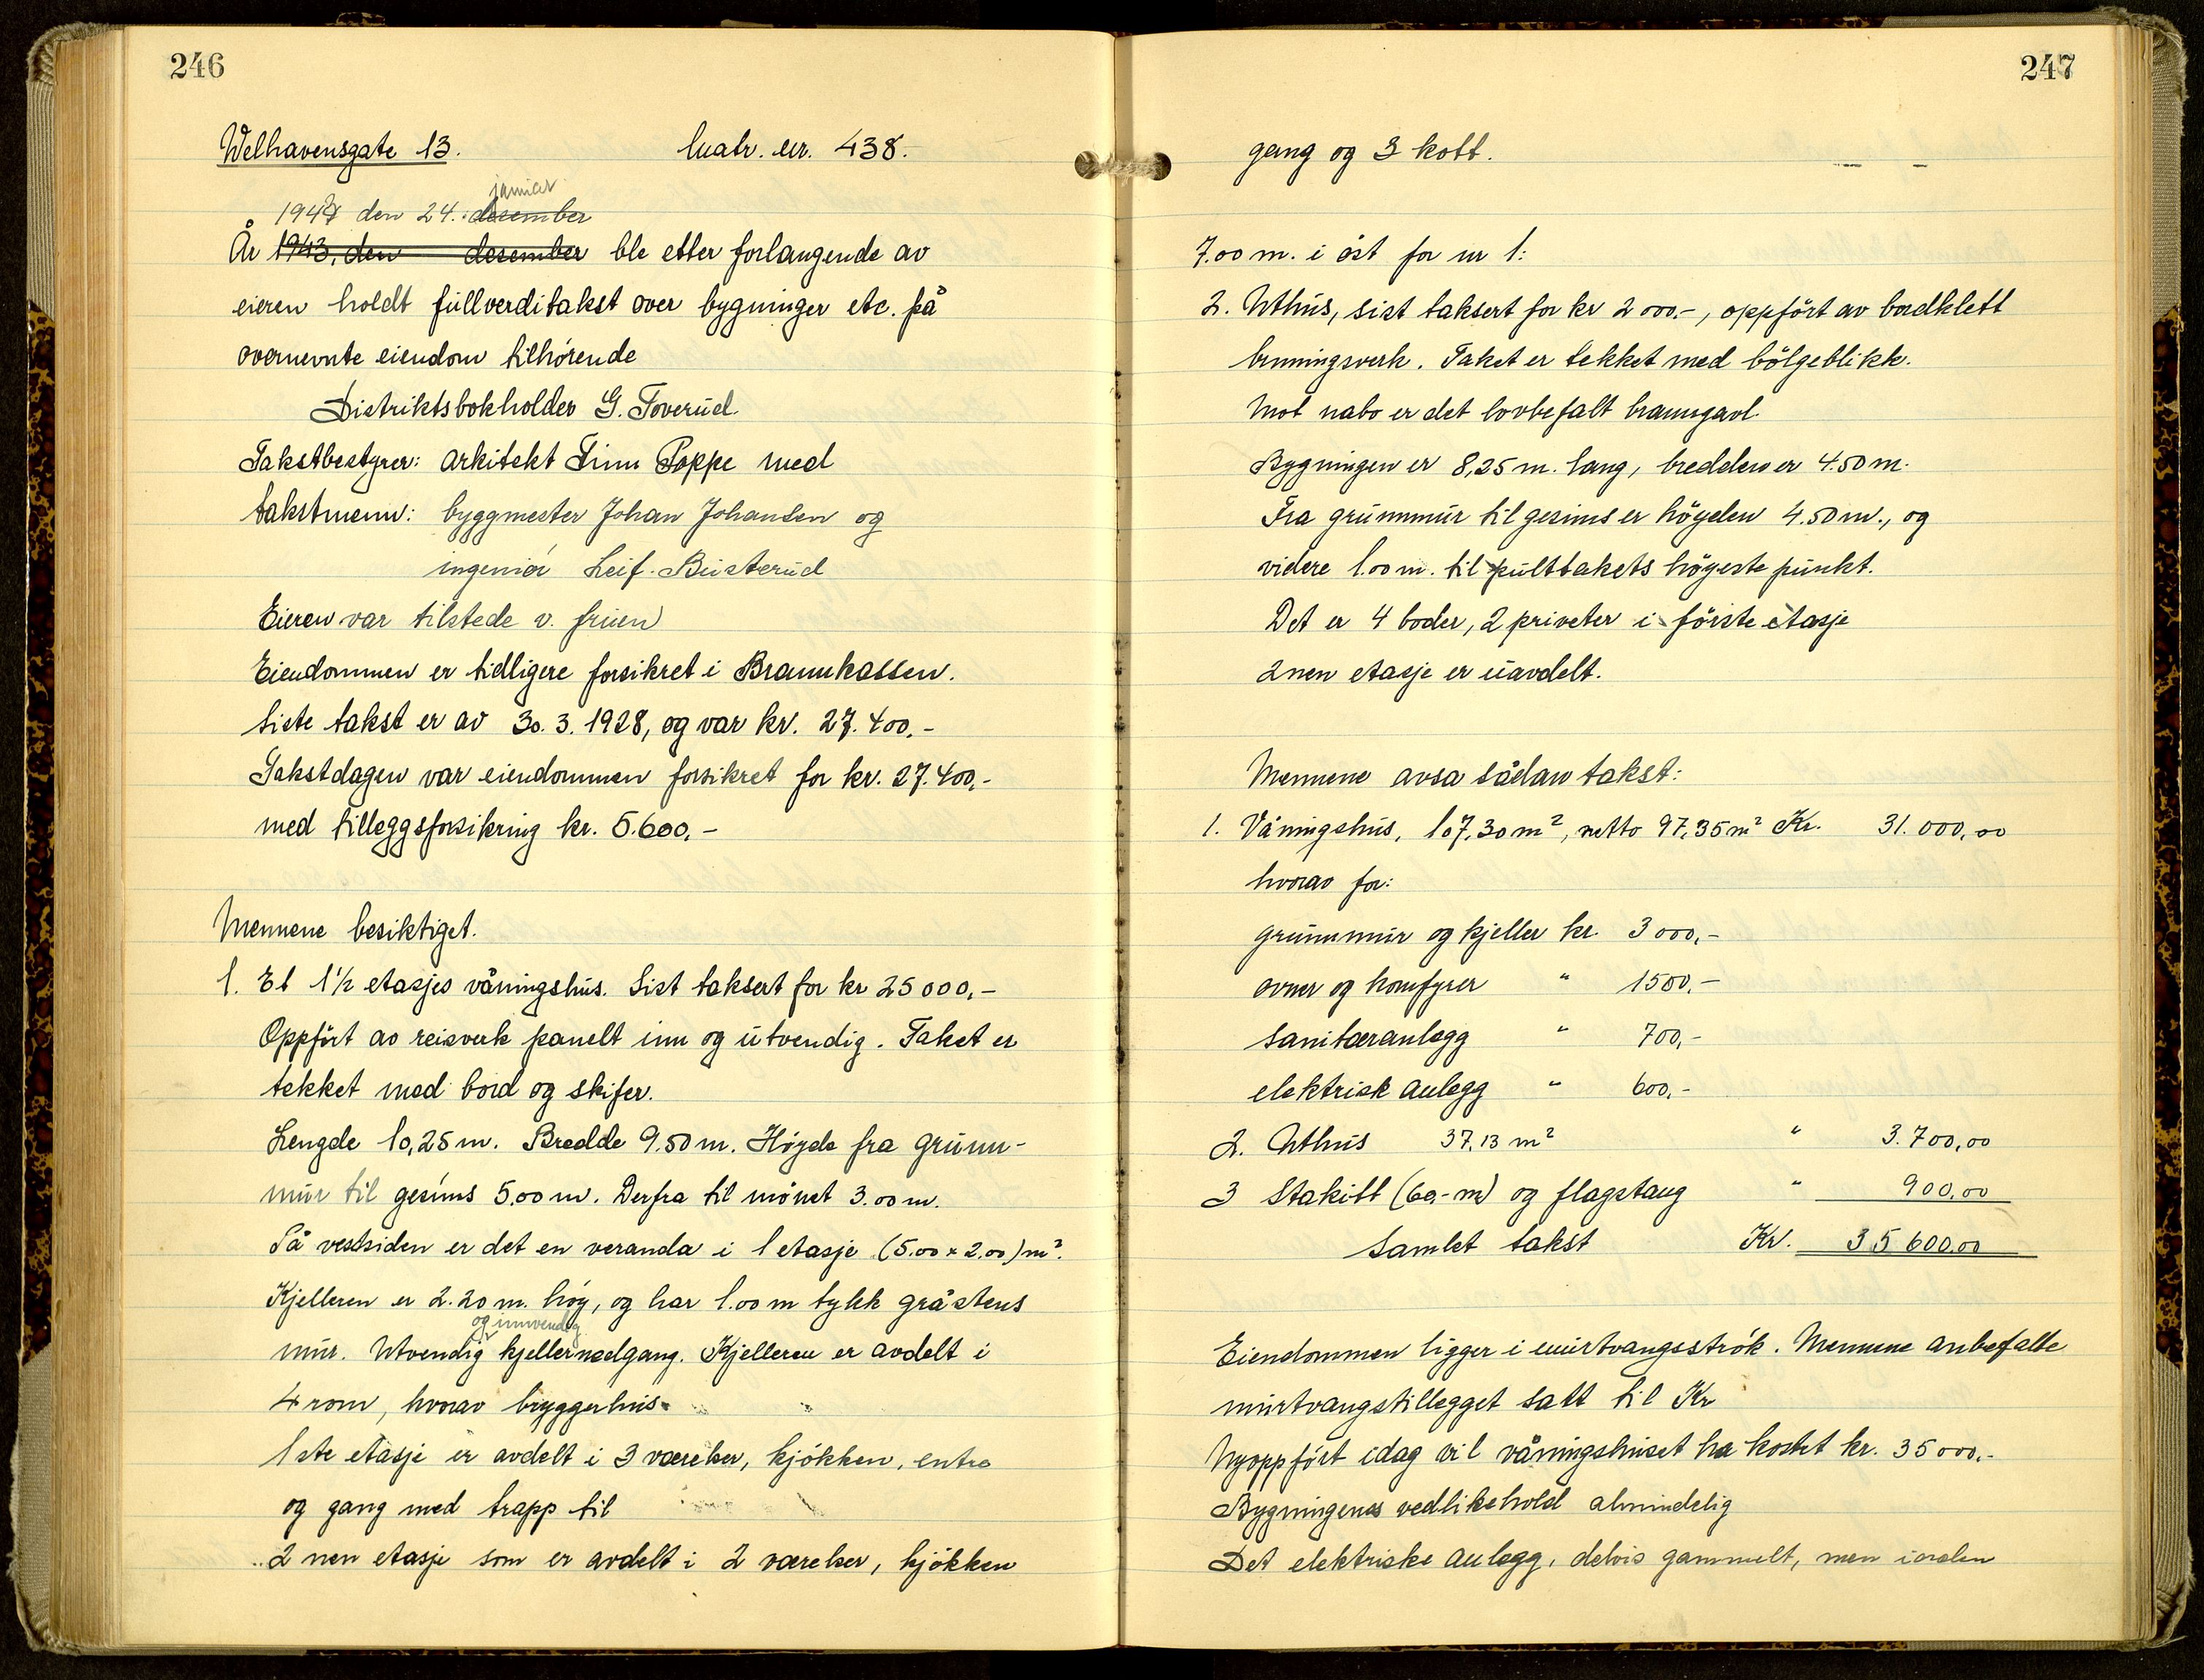 246
Welhavensgate 13. Matr. nr. 438.
januar
194 den 24. desember
År 1943, den desember ble etter forlangende av
eieren holdt fullverditakst over bygninger etc. på
overnevnte eiendom tilhørende
Distriktsbokholder G. Toverud.
Takstbestyrer: arkitekt Finn Poppe med
takstmenn: byggmester Johan Johansen og
ingeniør Leif Busterud
Eieren var tilstede v. fruen
Eiendommen er tidligere forsikret i Brannkassen.
Siste takst er av 30.3.1928, og var kr. 27.400,-
Takstdagen var eiendommen forsikret for kr. 27.400,-
med tilleggsforsikring kr. 5.600,-
Mennene besiktiget.
1. Et 1½ etasjes våningshus. Sist taksert for kr 25000,-
Oppført av reisverk panelt inn og utvendig. Taket er
tekket med bord og skifer.
Lengde 10,25 m. Bredde 9.50 m. Høyde fra grunn-
mur til gesims 5.00 m. Derfra til mønet 3.00 m.
På vestsiden er det en veranda i 1 etasje (5.00 x 2.00) m².
Kjelleren er 2.20 m. høy, og har 1.00 m tykk gråstens
og innvendig
mur. Utvendig kjellernedgang. Kjelleren er avdelt i
4 rom, hvorav bryggerhus.
1ste etasje er avdelt i 3 værelser, kjøkken, entre
og gang med trapp til
2 nen etasje som er avdelt i 2 værelser, kjøkken
247
gang og 3 kott.
7.00 m. i øst for nr 1:
2. Uthus, sist taksert for kr 2000.-, oppført av bordklett
binningsverk. Taket er tekket med bølgeblikk.
Mot nabo er det lovbefalt branngavl.
Bygningen er 8,25 m. lang, bredden er 4.50 m.
Fra grunnmur til gesims er høyden 4.50 m., og
videre 1.00 m. til pulttakets høyeste punkt.
Det er 4 boder, 2 priveter i første etasje
2nen etasje er uavdelt.
Mennene avsa sådan takst:
1. Våningshus, 107,30 m², netto 97,35 m² Kr. 31.000,00
hvorav for:
grunnmur og kjeller kr. 3000,-
ovner og komfyrer " 1500,-
sanitæranlegg " 700,-
elektrisk anlegg " 600,-
2. Uthus 37,13 m² " 3.700,00
3 Stakitt (60,- m) og flagstang " 900,00
Samlet takst Kr. 35600,00
Eiendommen ligger i murtvangsstrøk. Mennene anbefalte
murtvangstillegget satt til Kr
Nyoppført idag vil våningshuset ha kostet kr. 35000.-
Bygningenes vedlikehold almindelig
Det elektriske anlegg, delvis gammelt, men iorden